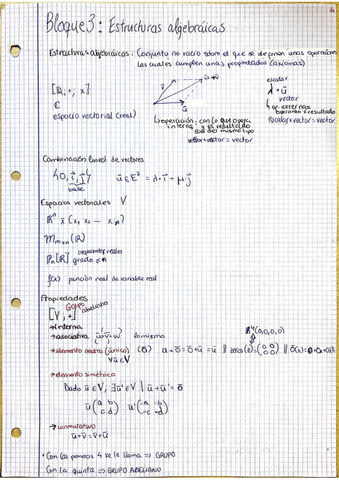 Bloque 3: Estructuras algebráicas
Estructuras algebráicas: Conjunto no vacío sobre el que se definen unas operaciones
las cuales cumplen unas propiedades (axiomas)
[R, +, x]
C
espacio vectorial (real)
u + v
u
v
operación: con lo que opero
interna y es resultado
son del mismo tipo
vector + vector = vector
escalar
λ · u
vector
op externas
resultado
escalar · vector = vector
Combinación lineal de vectores
{0, i, j}
base
u ∈ E² = λ · i + μ · j
Espacios vectoriales V
Rⁿ x (x₁ x₂ — xₙ)
Mmxn (R)
Pn [R] grado ≤ n
coeficientes reales
f(x) función real de variable real
Propiedades
[V, +] GRUPO abeliano
→ interna
→ asociativa lo mismo
→ elemento neutro (único) (0) u + 0 = 0 + u = u
∀u ∈ V
R⁴ (0,0,0,0)
→ elemento simétrico
Dado u ∈ V, ∃ u' ∈ V | u + u' = 0
u (a b
c d) u' (-a -b
-c -d)
→ conmutativa
u + v = v + u
• Con las primeras 4 se le llama => GRUPO
Con la quinta => GRUPO ABELIANO